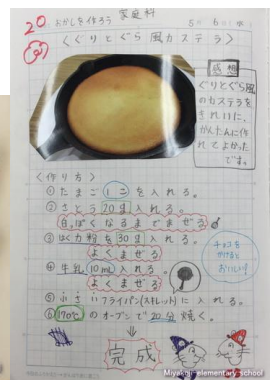 20
おかしを作ろう 家庭科 5月6日(水)
〈ぐりとぐら風カステラ〉
感想
ぐりとぐら風
のカステラを
きれいに、
かんたんに作
れてよかった
です。
〈作り方〉
①たまご1こを入れる。
②さとう20gを入れる。
白っぽくなるまでまぜる
③はく力粉を30g入れる。
よくまぜる
④牛乳10mL入れる。
よくまぜる
チョコを
かけると
おいしい!
⑤小さいフライパン(スキレット)に入れる。
⑥170℃のオーブンで20分焼く。
完成
Miyakoji elementary school